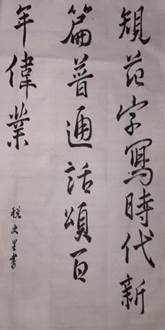 規范字寫時代新
篇普通話頌百
年偉業
税文星書